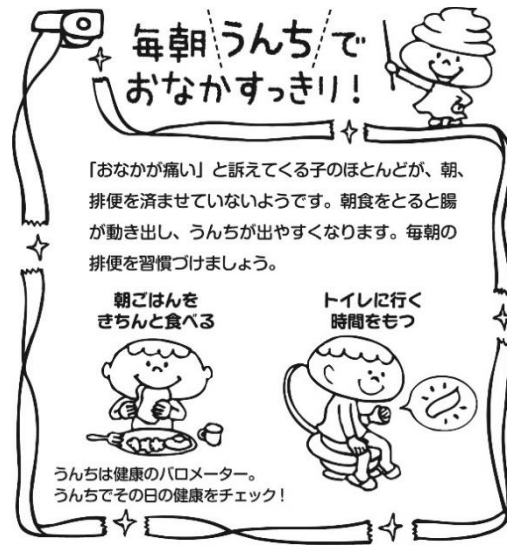 毎朝うんちで
おなかすっきり!
「おなかが痛い」と訴えてくる子のほとんどが、朝、
排便を済ませていないようです。朝食をとると腸
が動き出し、うんちが出やすくなります。毎朝の
排便を習慣づけましょう。
朝ごはんを
きちんと食べる
トイレに行く
時間をもつ
うんちは健康のバロメーター。
うんちでその日の健康をチェック!